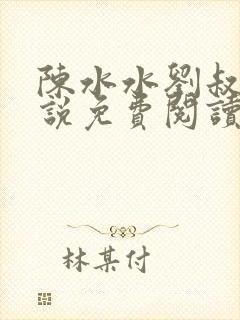 陳水水劉叔
說免費閱讀
林某付